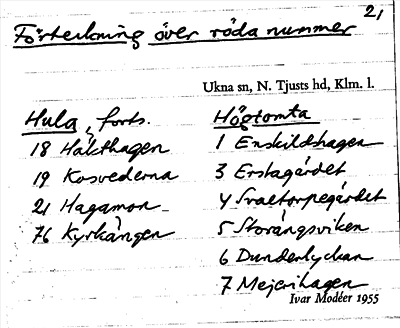 21
Förteckning över röda nummer
Ukna sn, N. Tjusts hd, Klm. l.
Hula, forts.
18 Häkthagen
19 Kosvederna
21 Hagamon
76 Kyrkängen
Högtomta
1 Enskildhagen
3 Erstagärdet
4 Svaltorpegärdet
5 Storängsviken
6 Dunderlyckan
7 Mejerihagen
Ivar Modéer 1955